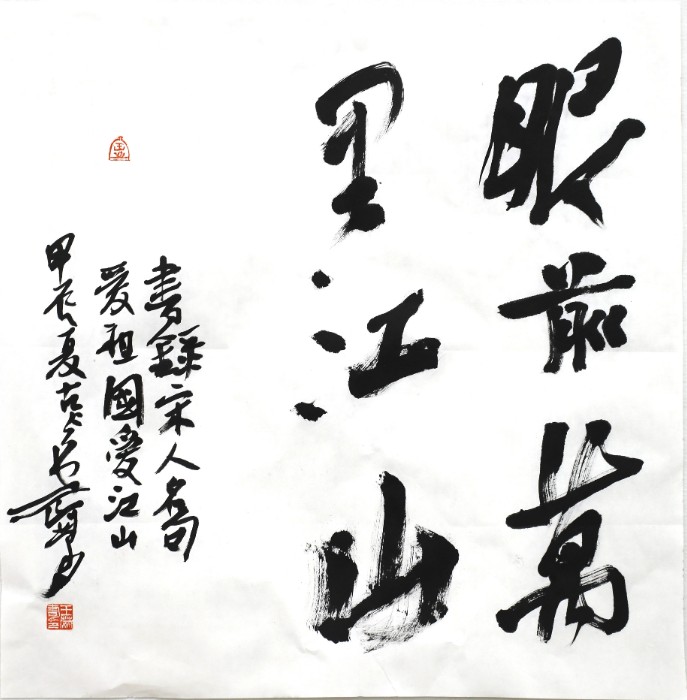 眼前萬
里江山
書錄宋人名句
愛祖國愛江山
甲辰夏